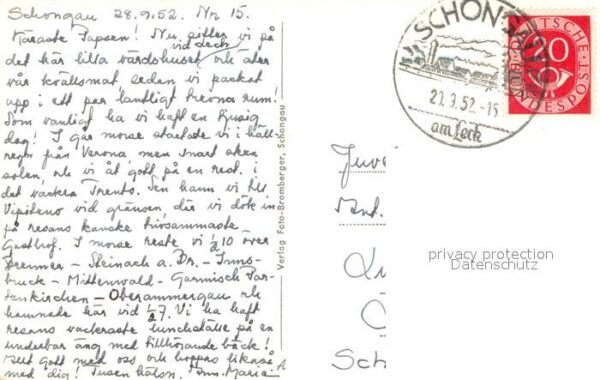 Schongau 28.9.52. Nr 15.
Käraste Papsen! Nu sitter vi på
vid Lech
det här lilla värdshuset och äter
vår kvällsmat sedan vi packat
upp i ett par lantligt trevna rum!
Som vanligt ha vi haft en tjusig
dag! I går morse startade vi i häll-
regn från Verona, men snart sken
solen, och vi åt gott på en rest. i
det vackra Trento. Sen hann vi till
Vipiteno vid gränsen, där vi dök in
på resans kanske
Gasthof. I morse reste vi ½10 över
Brenner – Steinach a. Br. – Inns-
bruck – Mittenwald – Garmisch Par-
tenkirchen – Oberammergau och
hamnade här vid ½7. Vi ha haft
resans vackraste lunchställe på en
underbar äng med tillhörande bäck!
Allt gott med oss och hoppas likaså
med dig! Tusen hälsn. Ann-Maria
Verlag Foto-Bromberger, Schongau
SCHONGAU
29.9.52.-15
am Lech
DEUTSCHE BUNDESPOST
20
Juv
Ant.
Sch
privacy protection
Datenschutz